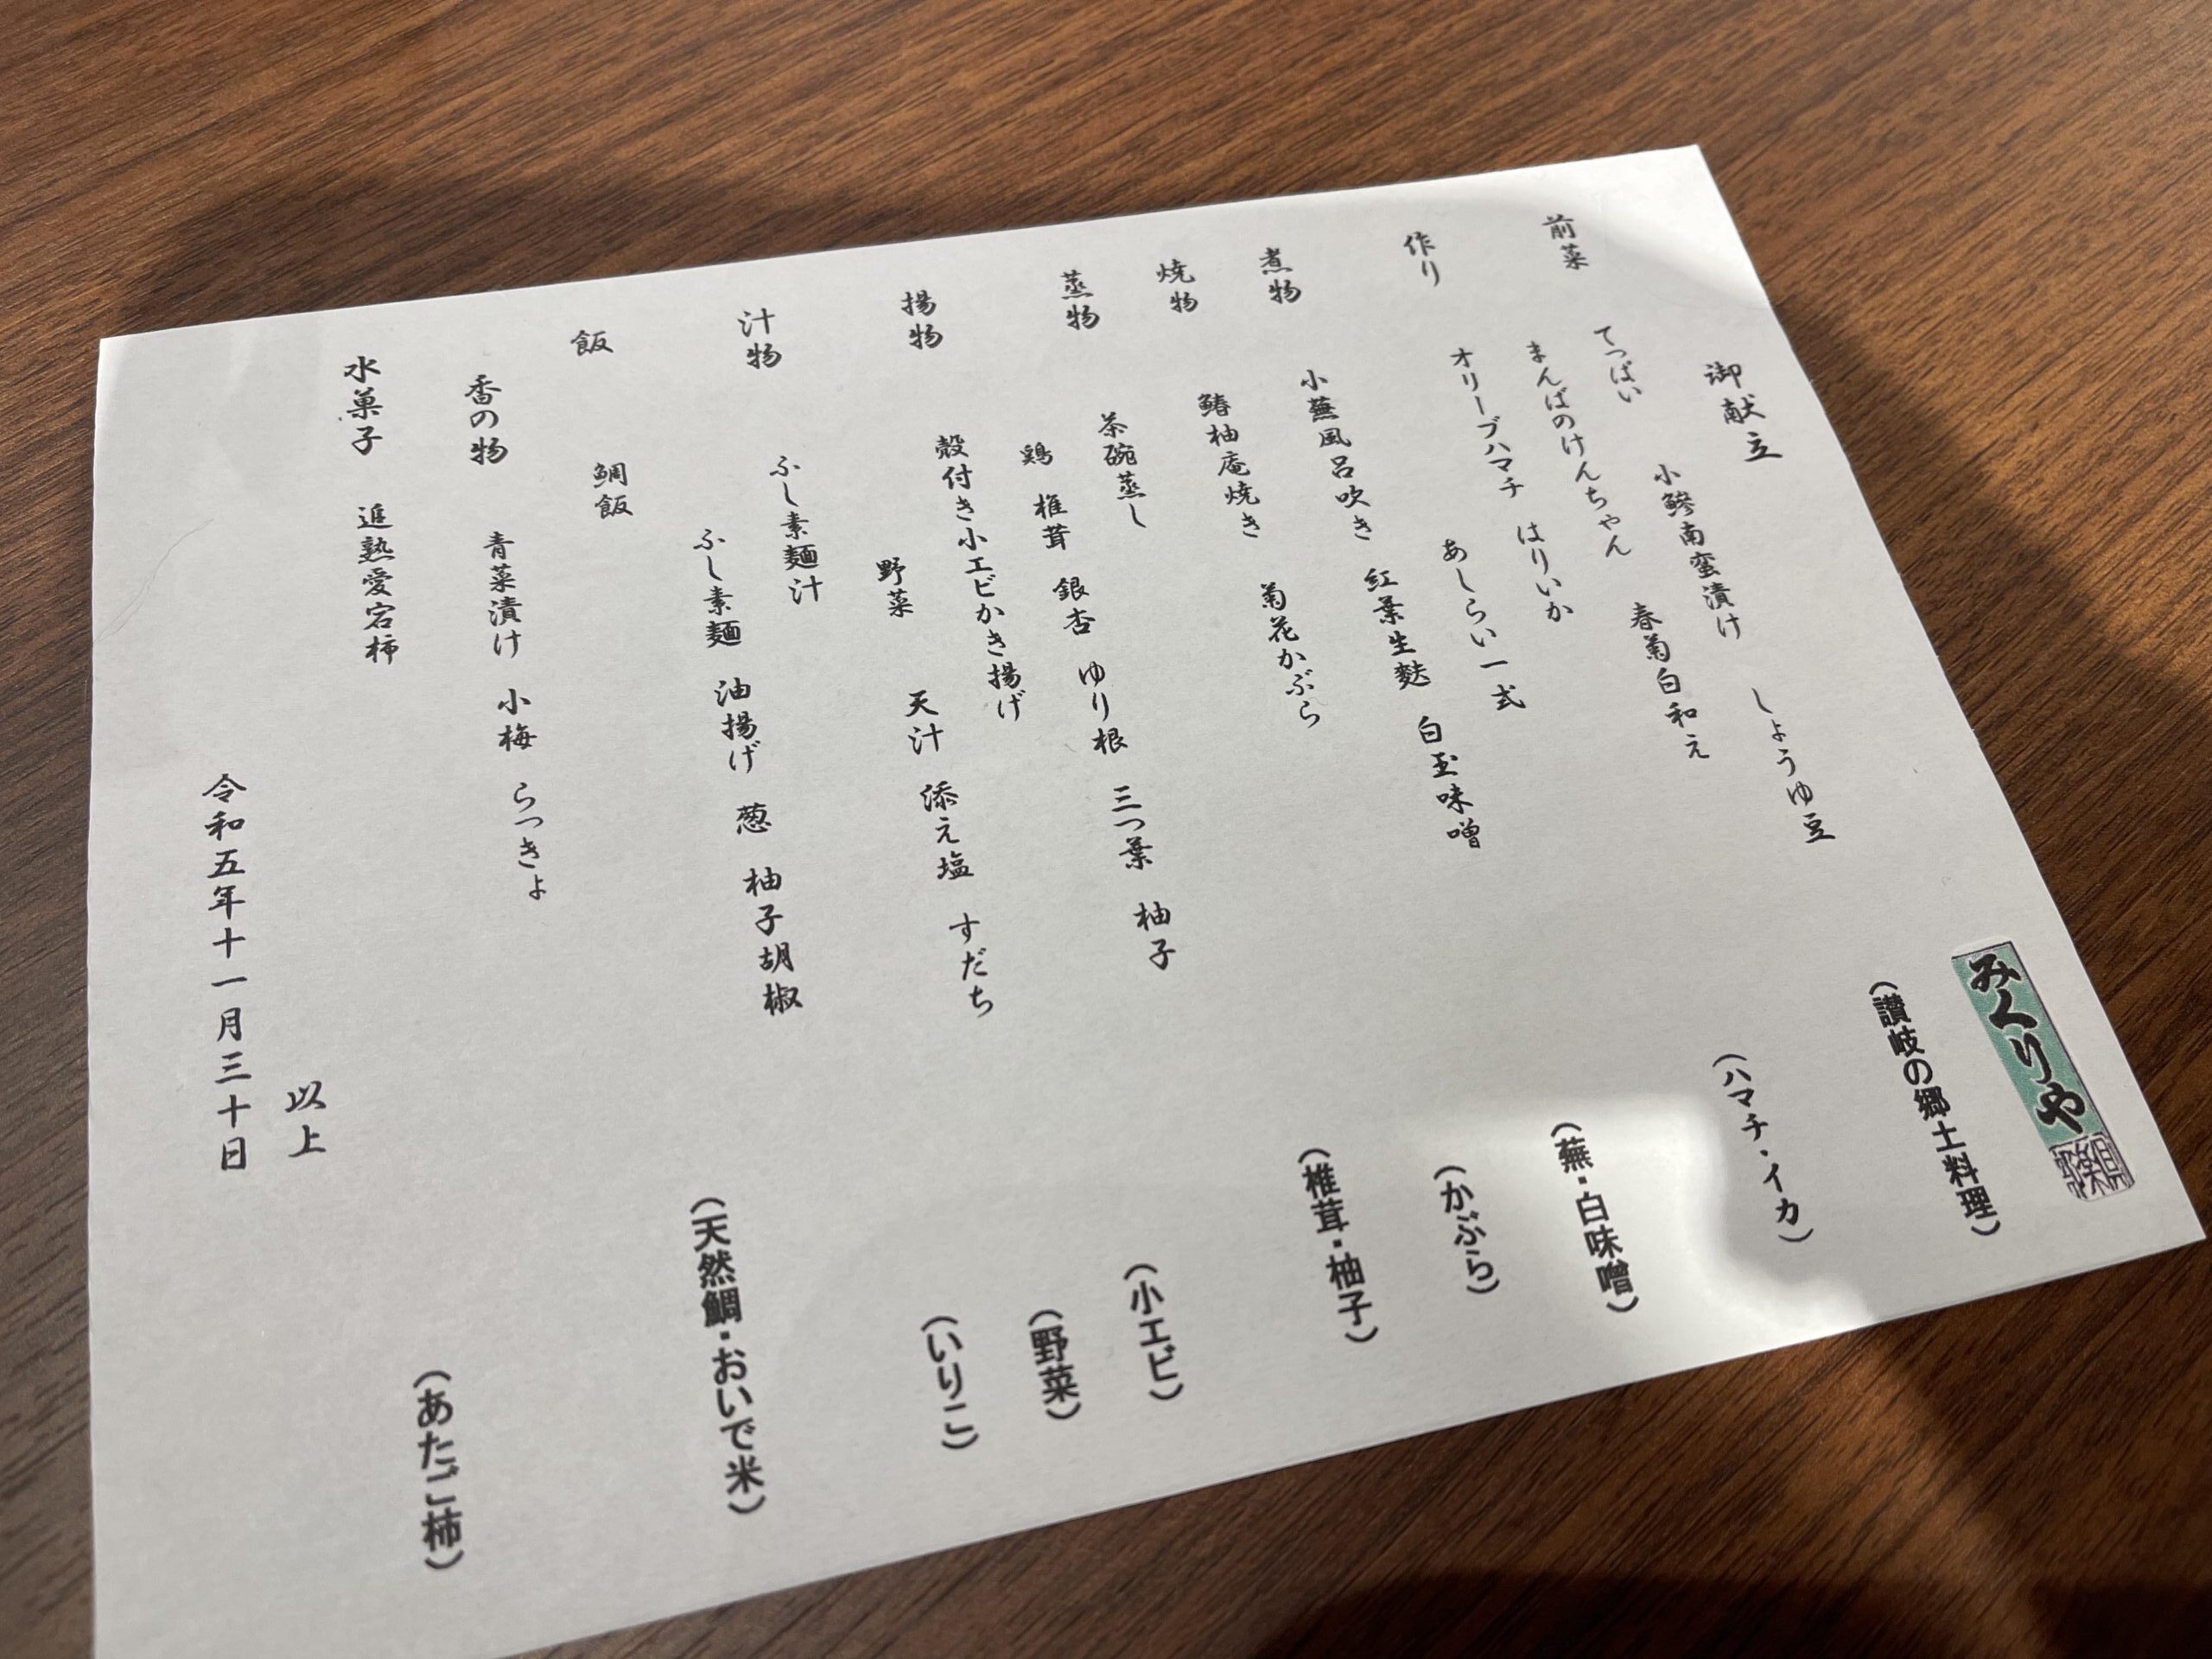 みくりや
御献立
前菜 てっぱい 小鯵南蛮漬け しょうゆ豆 (讃岐の郷土料理)
まんばのけんちゃん 春菊白和え
作り オリーブハマチ はりいか (ハマチ・イカ)
あしらい一式
煮物 小蕪風呂吹き 紅葉生麩 白玉味噌 (蕪・白味噌)
焼物 鰆柚庵焼き 菊花かぶら (かぶら)
蒸物 茶碗蒸し (椎茸・柚子)
鶏 椎茸 銀杏 ゆり根 三つ葉 柚子
揚物 殻付き小エビかき揚げ (小エビ)
野菜 天汁 添え塩 すだち (野菜)
汁物 ふし素麺汁 (いりこ)
ふし素麺 油揚げ 葱 柚子胡椒
飯 鯛飯 (天然鯛・おいで米)
香の物 青菜漬け 小梅 らっきょ
水菓子 追熟愛宕柿 (あたご柿)
以上
令和五年十一月三十日